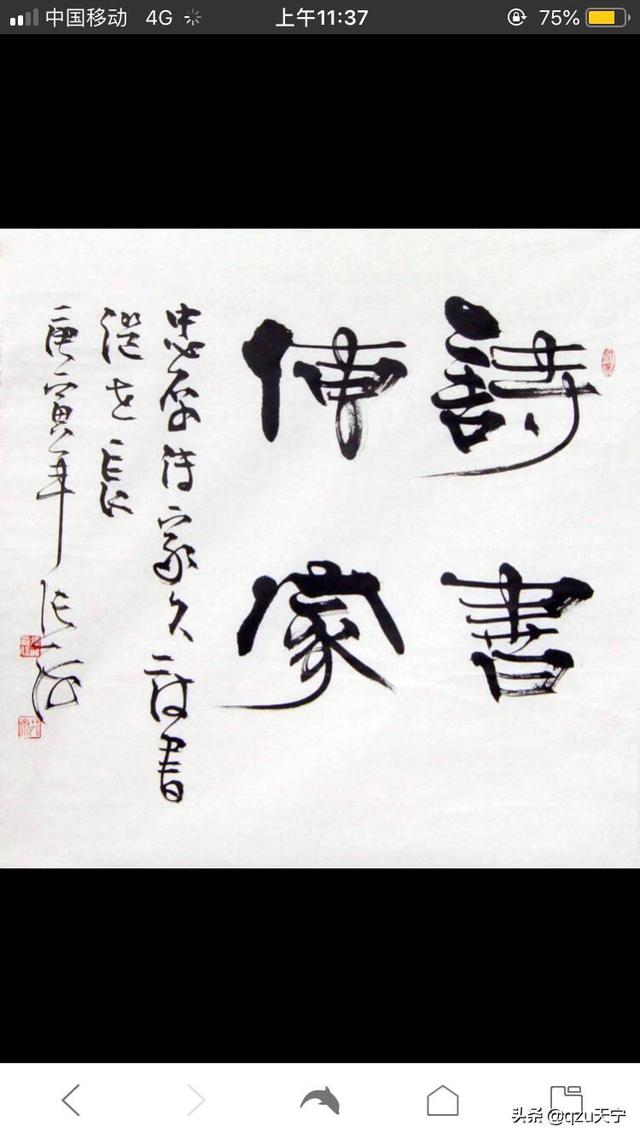 中国移动 4G 上午11:37 75%
詩書
傳家
忠厚傳家久詩書
繼世長
庚寅年
头条 @qzu天宁